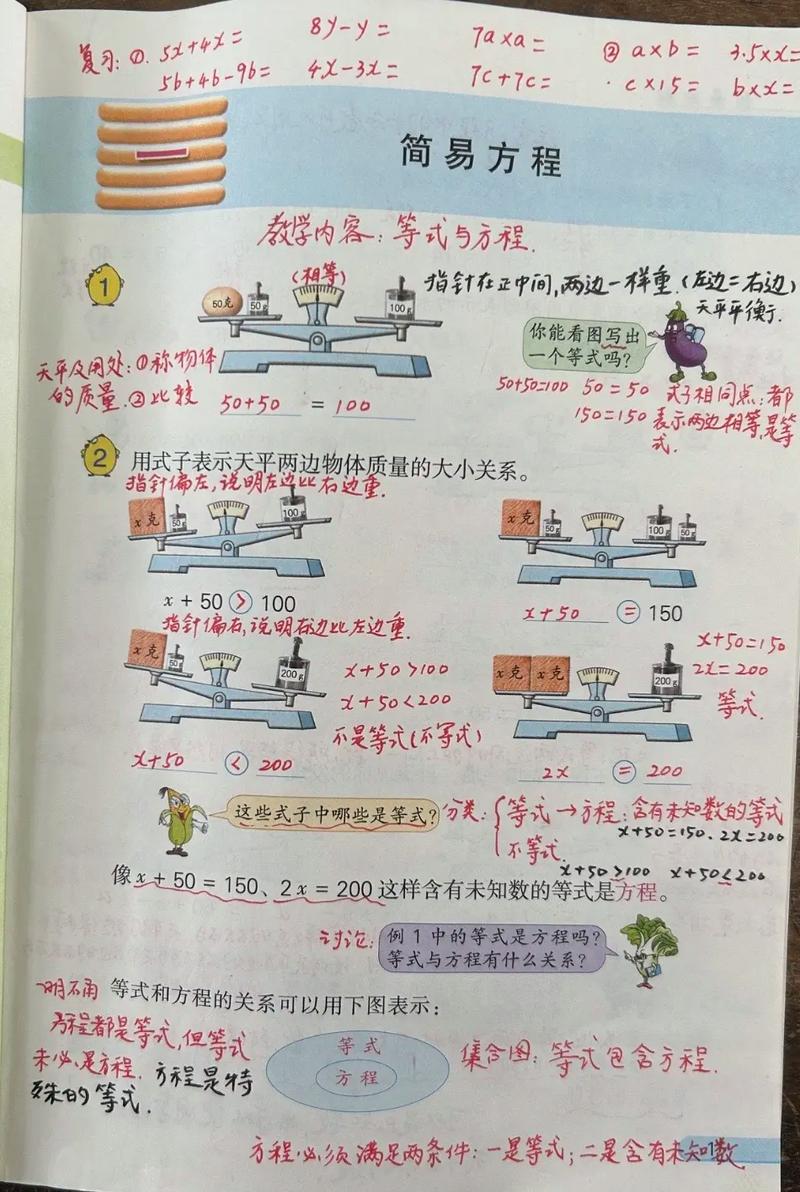 复习: ①. 5x+4x= 8y-y= 7a×a= ② a×b= 3.5×x=
5b+4b-9b= 4x-3x= 7c+7c= · c×15= b×x=
一
简易方程
教学内容: 等式与方程.
1
(相等)
50克 50g 100g
指针在正中间,两边一样重.(左边=右边)
天平平衡.
你能看图写出
一个等式吗?
天平及用处: ①称物体
的质量. ②比较
50+50 = 100
50+50=100 50=50 式子相同点: 都
150=150 表示两边相等,是等
式.
2 用式子表示天平两边物体质量的大小关系。
指针偏左,说明左边比右边重.
x克 50g 100g
x克 50g 100g 50g
x + 50 > 100
x+50 = 150
指针偏右,说明右边比左边重.
x克 50g 200g
x克 x克 200g
x+50>100
x+50<200
不是等式(不等式)
x+50=150
2x=200
等式.
x+50 < 200
2x = 200
这些式子中哪些是等式?
分类: { 等式→方程: 含有未知数的等式
x+50=150、2x=200
不等式.
x+50>100 x+50<200
像 x + 50 = 150、2x = 200 这样含有未知数的等式是方程。
讨论:
例1中的等式是方程吗?
等式与方程有什么关系?
明确
等式和方程的关系可以用下图表示:
方程都是等式,但等式
未必是方程. 方程是特
殊的等式.
等式
方程
集合图: 等式包含方程.
方程必须满足两条件: 一是等式; 二是含有未知数
1